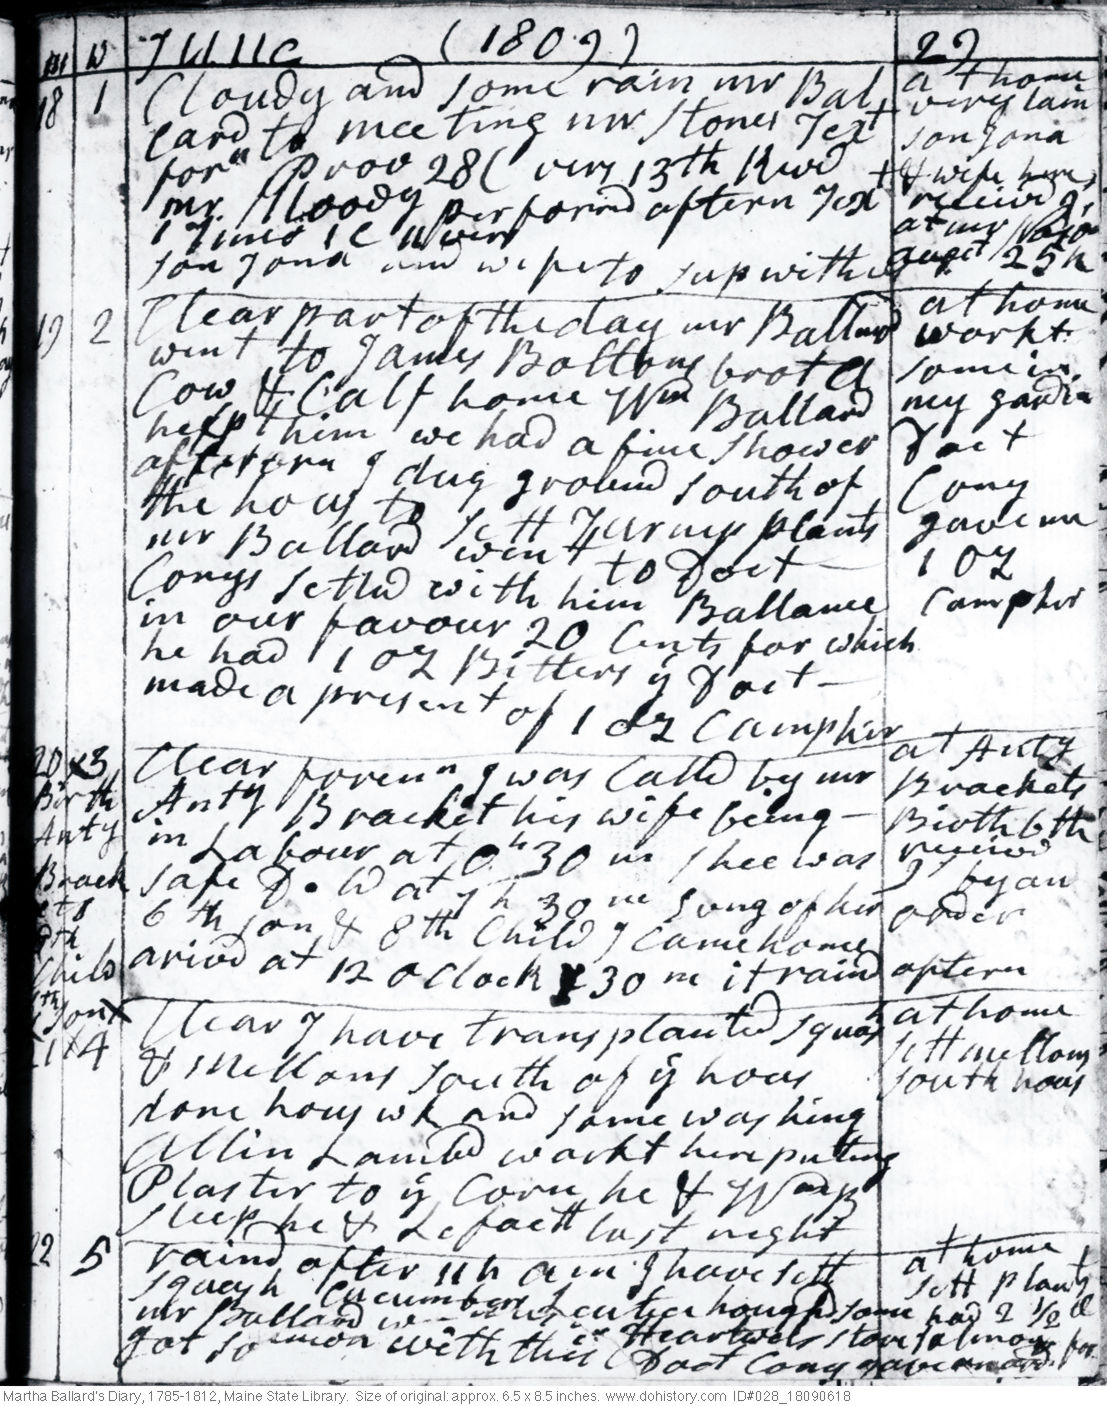 m w June (1809) 29
18 1 Cloudy and some rain mr Bal
lard to meeting mr Stones Text
foren Prov 28 C vers 13th Revd
mr Moody performd aftern Text
1 1 C vers
son Jona and wife to sup with us
at home
very lain
son Jona
& wife here
received
at mr
25
19 2 Clear part of the day mr Ballard
went to James Boltons brot a
Cow & Calf home Wm Ballard
help him we had a fine shower
afternn I dug ground south of
the hous to sett Turnip plants
mr Ballard went to Doct
Conys setled with him Ballance
in our favour 20 Cents for which
he had 1 oz Bitters ye Doct
made a present of 1 oz Camphir
at home
workt
some in
my gardin
Doct
Cony
gave me
1 oz
Camphir
20 x3 Clear forenn I was Calld by mr
Anty Bracket his wife being
in Labour at 0h 30 m shee was
safe D. Ld at 7h 30 m
6th son & 8th Child I came home
arivd at 12 o Clock & 30 m it raind aftern
Birth
Anty
Brack
ets
8th
Child
6th
son x
at Anty
Brackets
Birth 6th
received
by an
order
21 x4 Clear I have transplanted squas
& Mellons south of ye hous
done hous wk and some washing
Allin Lambd workt here puting
Plaster to ye Corn he &
sleep he & Lefaett last night
at home
sett mellons
south hous
22 5 raind after 11 h am I have sett
squash Cucumbers
mr Ballard
got with this Doct Cony gave
at home
sett plants
had 2 1/2 lb
Martha Ballard's Diary, 1785-1812, Maine State Library. Size of original: approx. 6.5 x 8.5 inches. www.dohistory.com ID#028_18090618